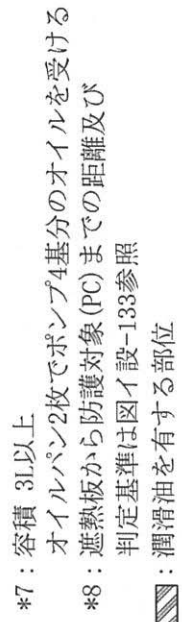 *7：容積 3L以上
オイルパン2枚でポンプ4基分のオイルを受ける
*8：遮熱板から防護対象(PC)までの距離及び
判定基準は図イ設-133参照
：潤滑油を有する部位